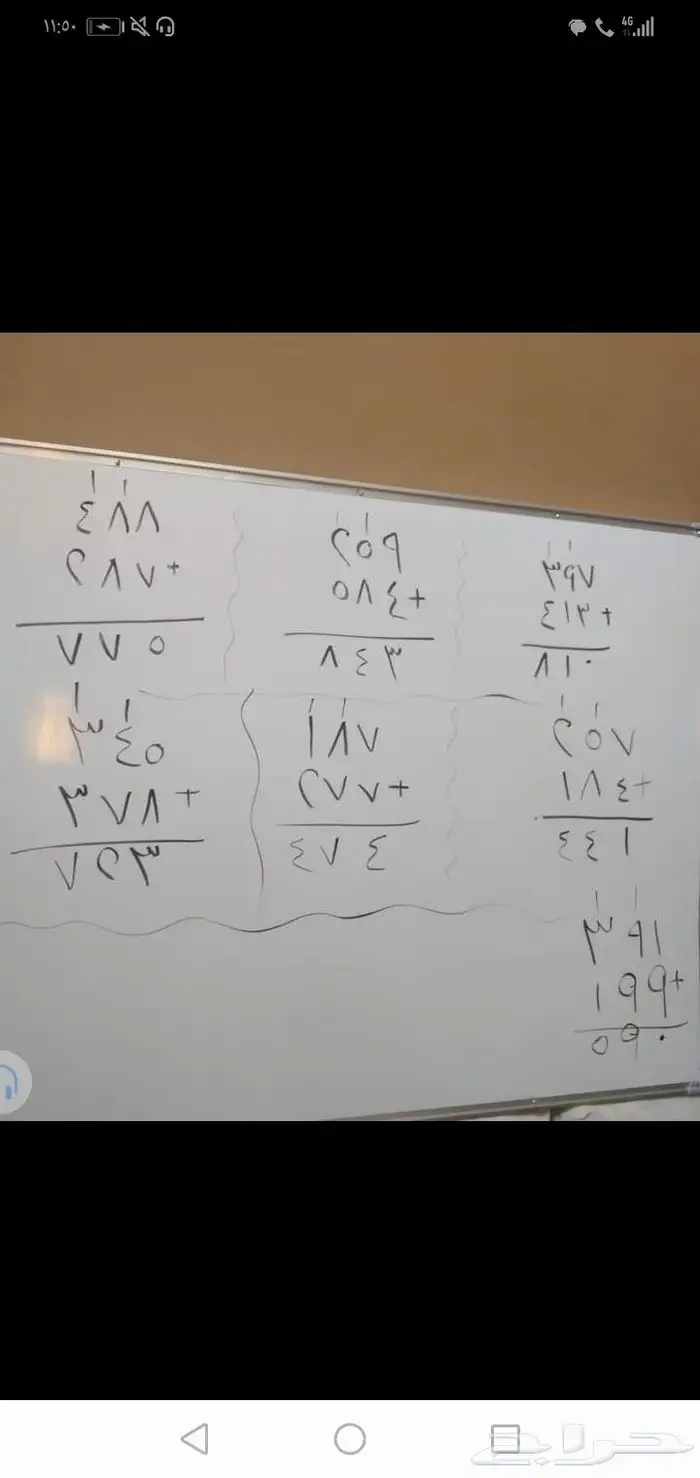 ١١:٥٠
4G
١ ١
٤٨٨
٢٨٧ +
٧٧٥
١ ١
٢٥٩
٥٨٤ +
٨٤٣
١ ١
٣٩٧
٤١٣ +
٨١٠
١ ١
٣٤٥
٣٧٨ +
٧٢٣
١ ١
١٨٧
٢٨٧ +
٤٧٤
١ ١
٢٥٧
١٨٤ +
٤٤١
١ ١
٣٩١
١٩٩ +
٥٩٠
حراج